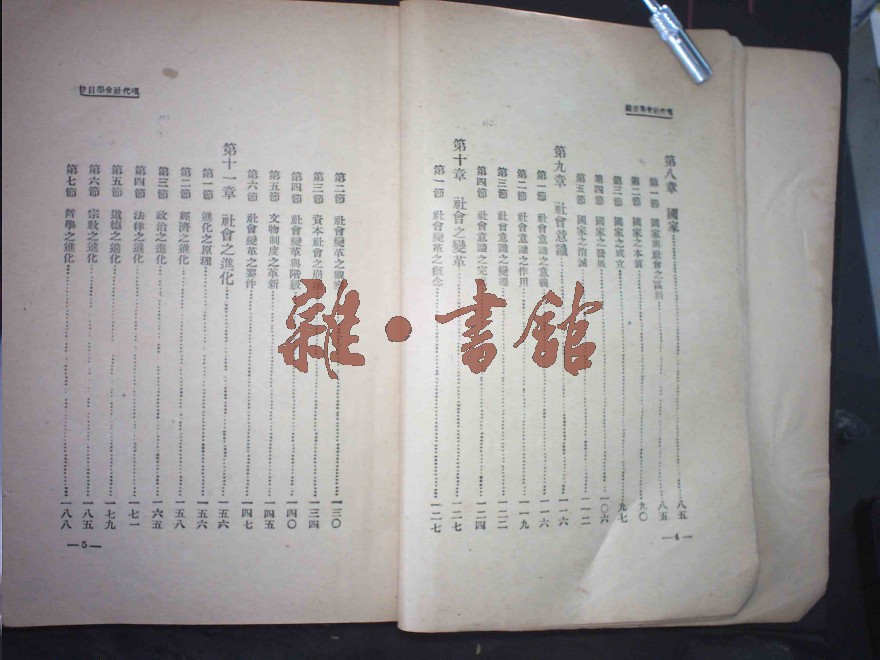 現代社會學目錄
第八章 國家 八五
第一節 國家與社會之區別 八五
第二節 國家之本質 九〇
第三節 國家之成立 九七
第四節 國家之發展 一〇六
第五節 國家之消滅 一一二
第九章 社會意識 一一六
第一節 社會意識之意義 一一六
第二節 社會意識之作用 一一九
第三節 社會意識之變遷 一二二
第四節 社會意識之 一二四
第十章 社會之變革 一二七
第一節 社會變革之概念 一二七
—4—
現代社會學目錄
第二節 社會變革之 一三〇
第三節 資本社會之崩壞 一三四
第四節 社會變革與階級 一四〇
第五節 文物制度之革新 一四五
第六節 社會變革之要件 一四七
第十一章 社會之進化 一五六
第一節 進化之原理 一五六
第二節 經濟之進化 一五八
第三節 政治之進化 一六五
第四節 法律之進化 一七一
第五節 道德之進化 一七九
第六節 宗教之進化 一八五
第七節 哲學之進化 一八八
—5—
雜·書館